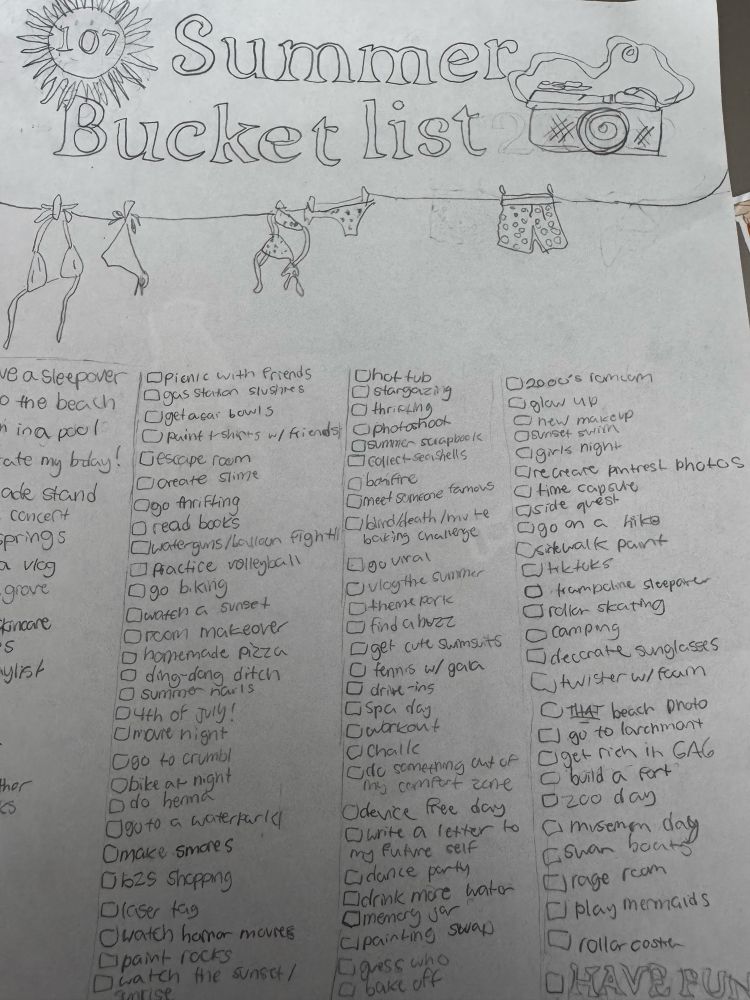 107
Summer
Bucket list
ve a sleepover
o the beach
in a pool
ate my bday!
ade stand
concert
springs
a vlog
grove
skincare
s
ylist
ther
ks
picnic with friends
gas station slushies
get acai bowls
paint t-shirts w/ friends
escape room
create slime
go thrifting
read books
waterguns/balloon fight!!
practice volleyball
go biking
watch a sunset
room makeover
homemade pizza
ding-dong ditch
summer nails
4th of july!
movie night
go to crumbl
bike at night
do henna
go to a waterpark
make smores
b2s shopping
laser tag
watch horror movies
paint rocks
watch the sunset/
sunrise
hot tub
stargazing
thrifting
photoshoot
summer scrapbook
collect seashells
bonfire
meet someone famous
blind/death/mute
baking challenge
go viral
vlog the summer
theme park
find a buzz
get cute swimsuits
tennis w/ gala
drive-ins
spa day
workout
chalk
do something out of
my comfort zone
device free day
write a letter to
my future self
dance party
drink more water
memory jar
painting swap
guess who
bake off
2000's romcom
glow up
new makeup
sunset swim
girls night
recreate pintrest photos
time capsule
side quest
go on a hike
sidewalk paint
tiktoks
trampoline sleepover
rollar skating
camping
decorate sunglasses
twister w/ foam
THAT beach photo
go to larchmont
get rich in GAG
build a fort
zoo day
musemen day
swan boats
rage room
play mermaids
rollar coster
HAVE FUN